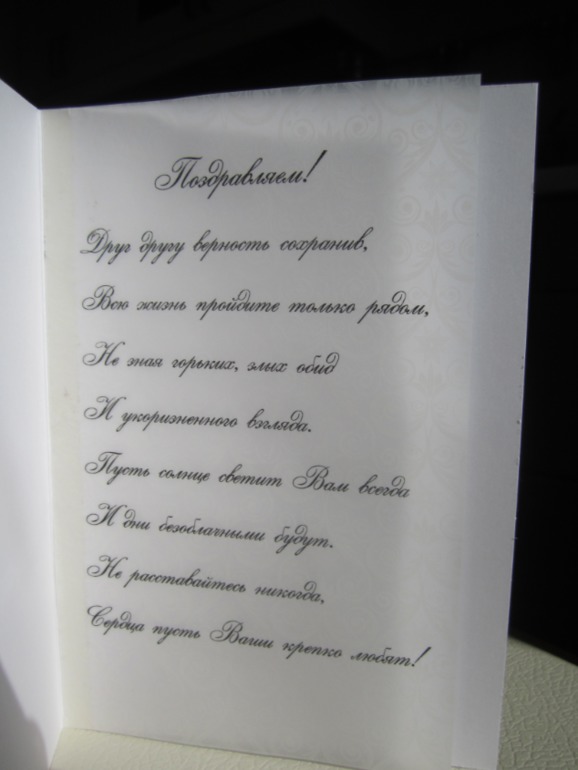 Поздравляем!
Друг другу верность сохранив,
Всю жизнь пройдите только рядом,
Не зная горьких, злых обид
И укоризненного взгляда.
Пусть солнце светит Вам всегда
И дни безоблачными будут.
Не расставайтесь никогда,
Сердца пусть Ваши крепко любят!